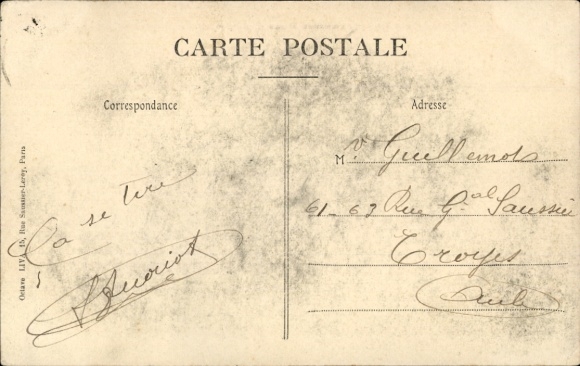 CARTE POSTALE
Correspondance
Ça se tire
Adresse
M r. Guillemots
61-63 Rue Gal Saussier
Troyes
Aube
Octave LIVA, 15, Rue Saussier-Leroy, Paris